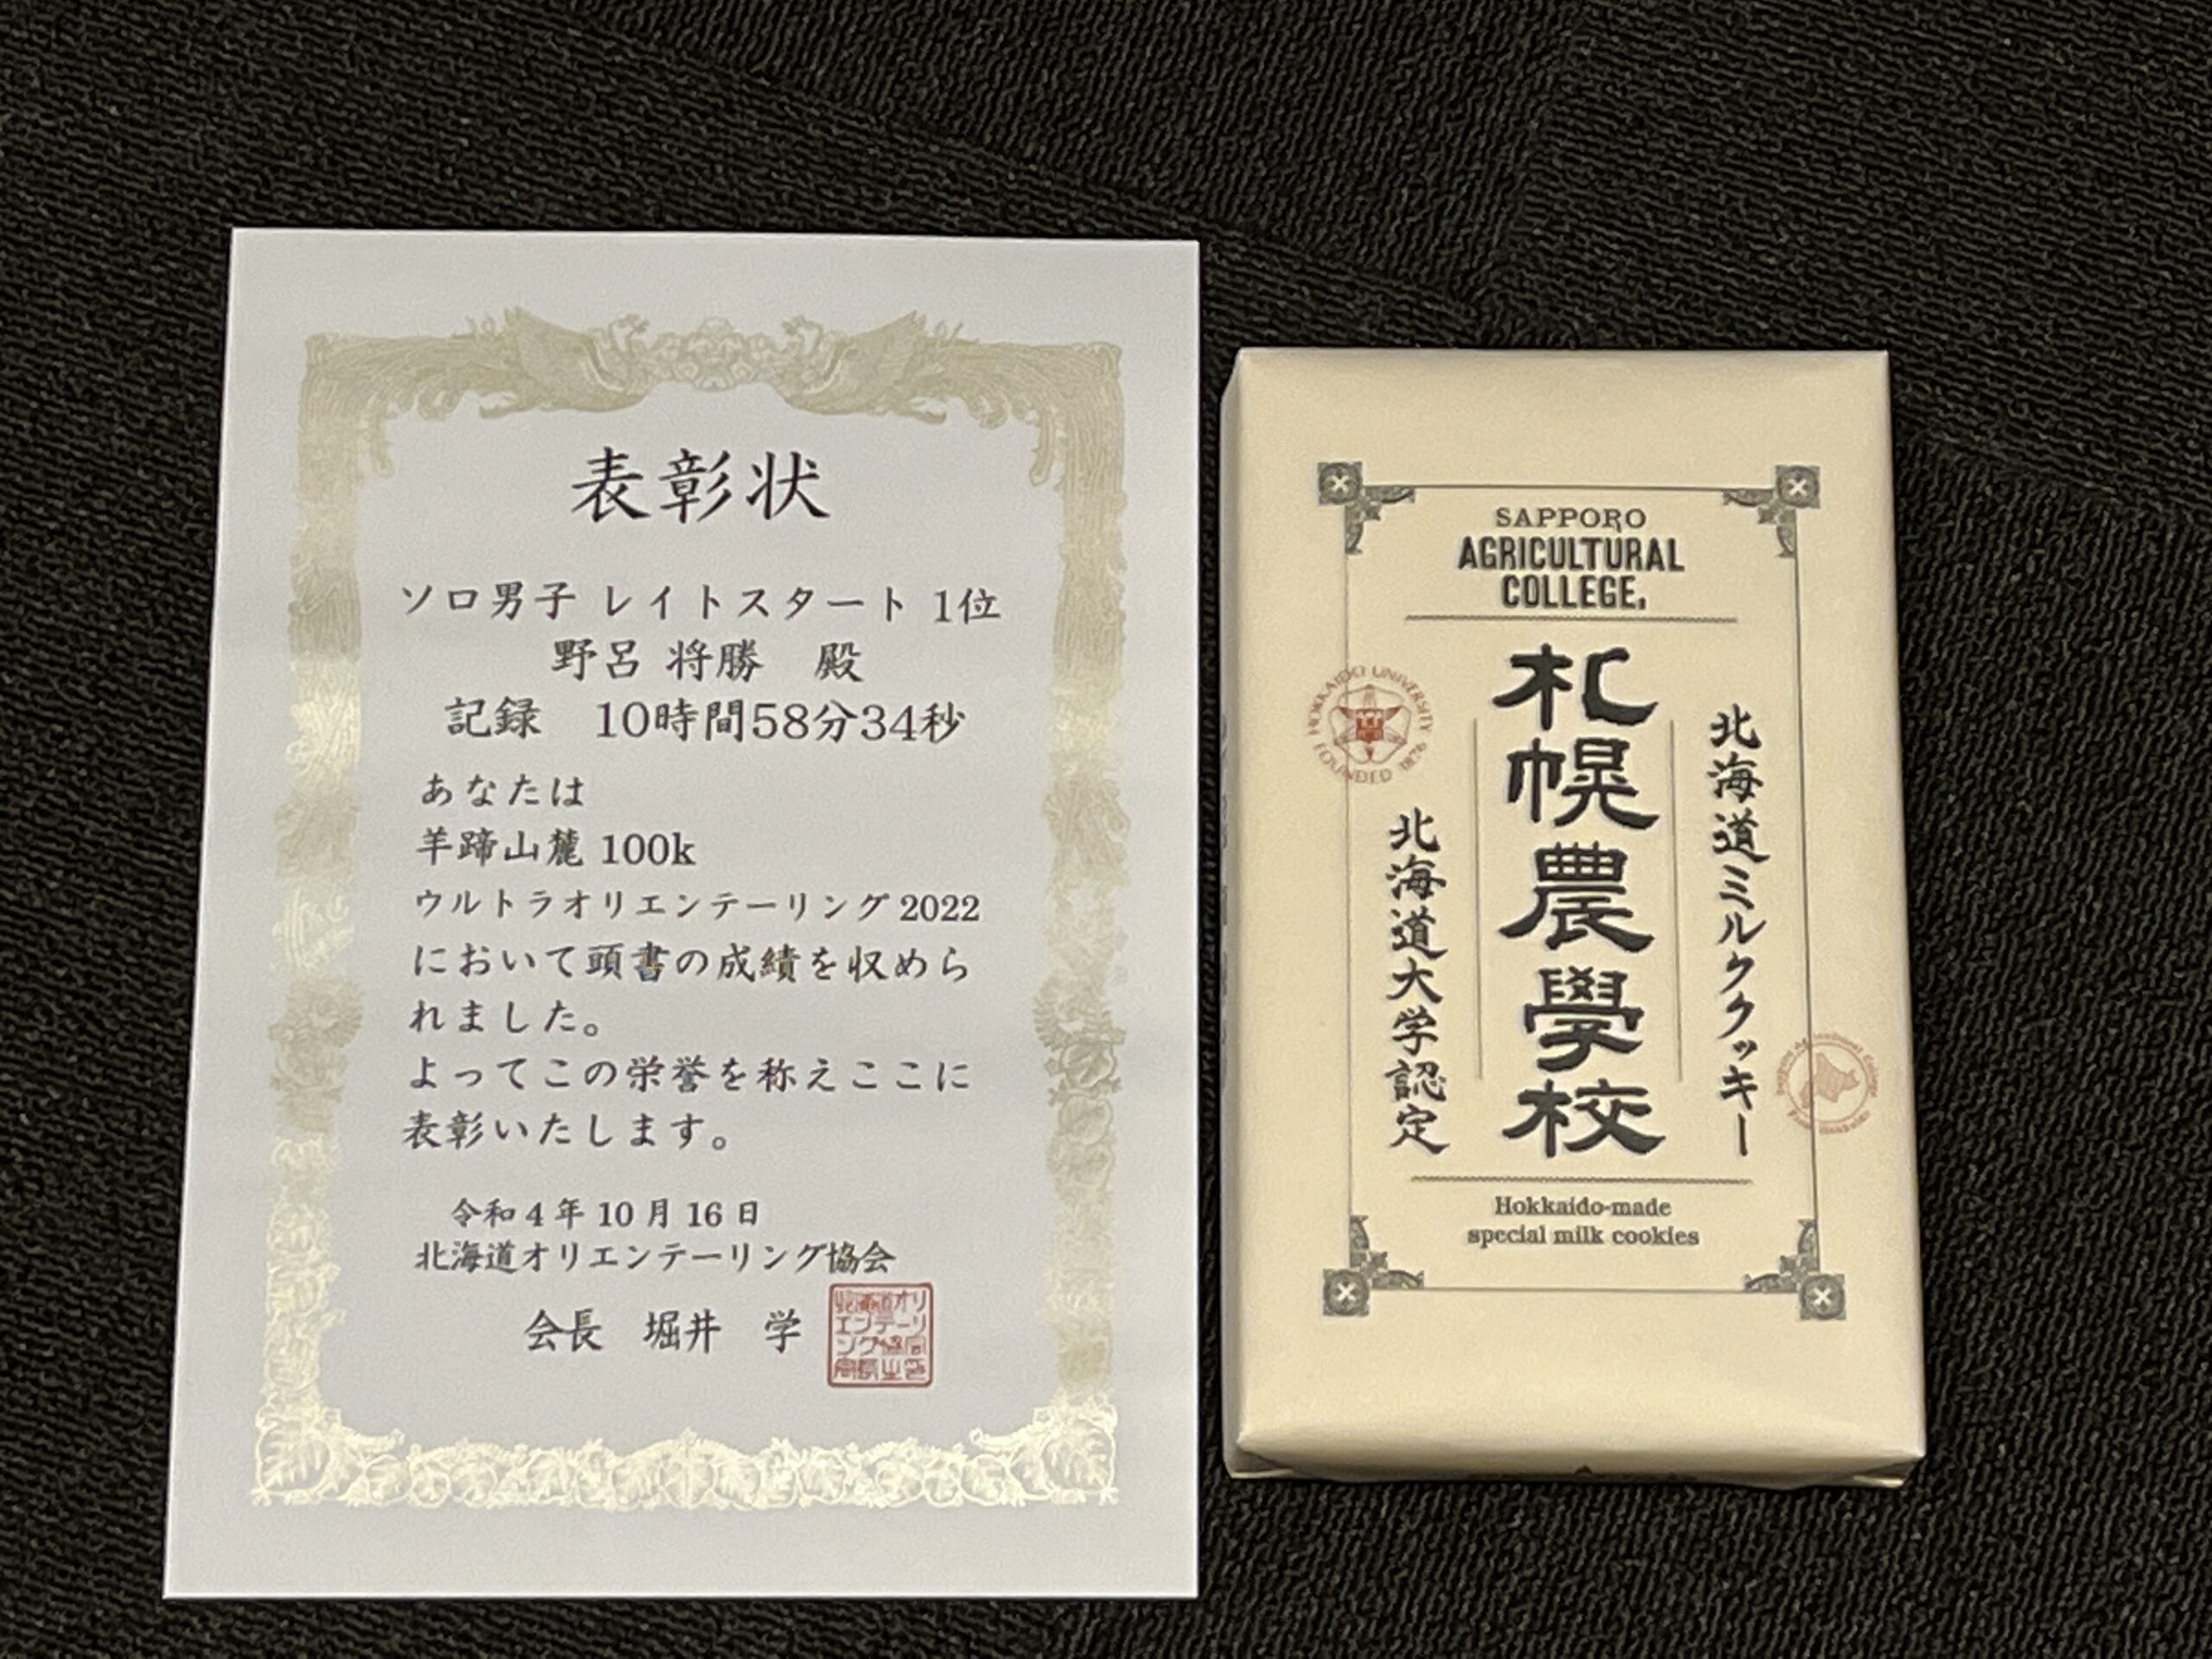 表彰状
ソロ男子 レイトスタート 1位
野呂 将勝 殿
記録 10時間58分34秒
あなたは
羊蹄山麓 100k
ウルトラオリエンテーリング 2022
において頭書の成績を収めら
れました。
よってこの栄誉を称えここに
表彰いたします。
令和 4 年 10 月 16 日
北海道オリエンテーリング協会
会長 堀井 学
SAPPORO
AGRICULTURAL
COLLEGE,
北海道ミルククッキー
札幌農學校
北海道大学認定
HOKKAIDO UNIVERSITY
FOUNDED 1876
Hokkaido-made
special milk cookies